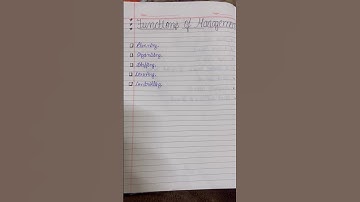 Functions of Management
Planning.
Organizing.
Staffing.
Leading.
Controlling.